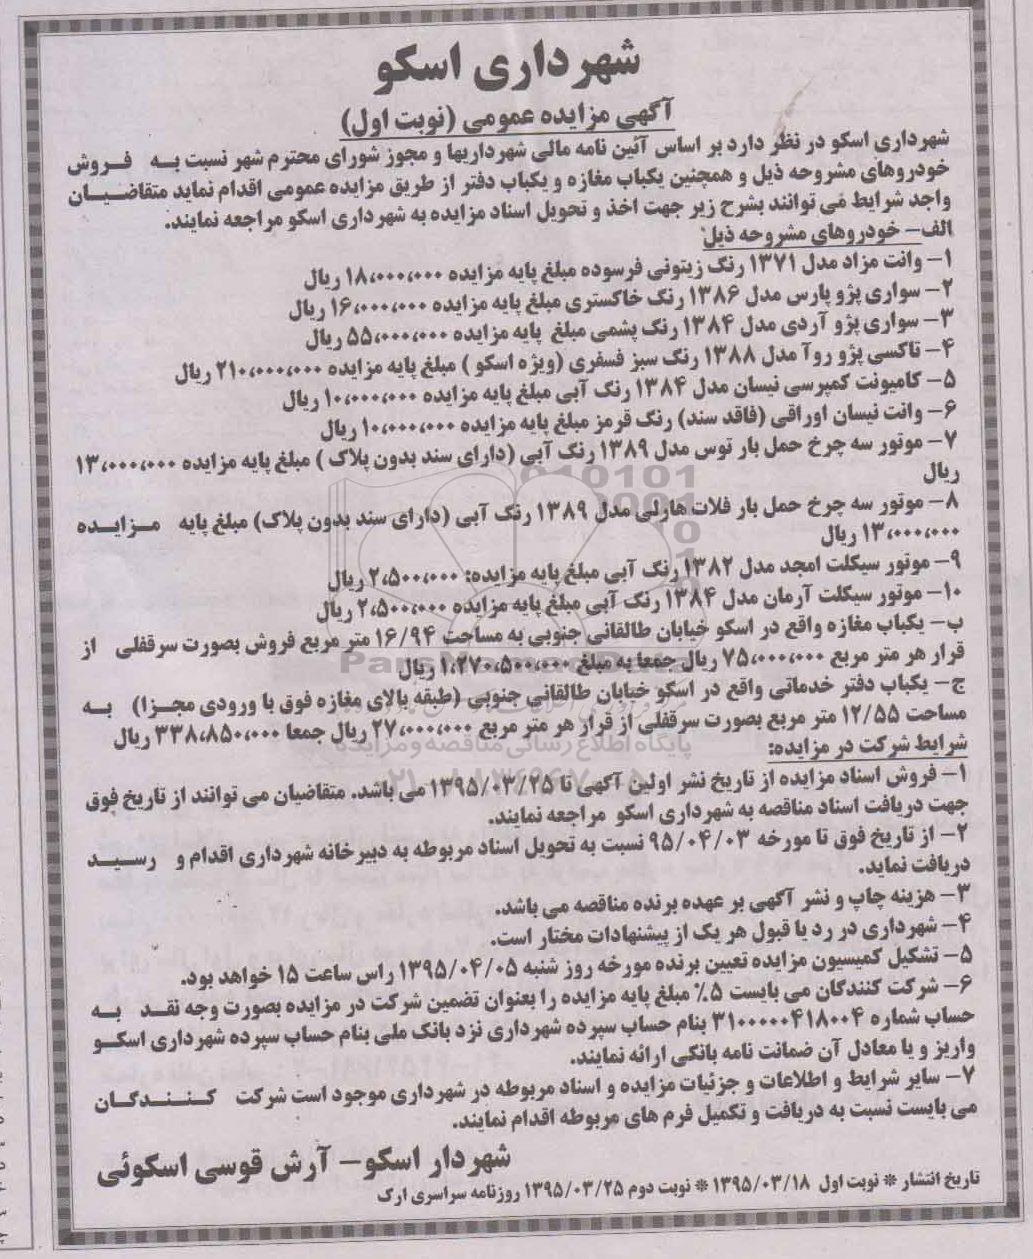 شهرداری اسکو
آگهی مزایده عمومی (نوبت اول)
شهرداری اسکو در نظر دارد بر اساس آئین نامه مالی شهرداریها و مجوز شورای محترم شهر نسبت به فروش
خودروهای مشروحه ذیل و همچنین یکباب مغازه و یکباب دفتر از طریق مزایده عمومی اقدام نماید متقاضیان
واجد شرایط می توانند بشرح زیر جهت اخذ و تحویل اسناد مزایده به شهرداری اسکو مراجعه نمایند.
الف- خودروهای مشروحه ذیل
۱- وانت مزاد مدل ۱۳۷۱ رنگ زیتونی فرسوده مبلغ پایه مزایده ۱۸،۰۰۰،۰۰۰ ریال
۲- سواری پژو پارس مدل ۱۳۸۶ رنگ خاکستری مبلغ پایه مزایده ۱۶،۰۰۰،۰۰۰ ریال
۳- سواری پژو آردی مدل ۱۳۸۴ رنگ پشمی مبلغ پایه مزایده ۵۵،۰۰۰،۰۰۰ ریال
۴- تاکسی پژو روآ مدل ۱۳۸۸ رنگ سبز فسفری (ویژه اسکو ) مبلغ پایه مزایده ۲۱۰،۰۰۰،۰۰۰ ریال
۵- کامیونت کمپرسی نیسان مدل ۱۳۸۴ رنگ آبی مبلغ پایه مزایده ۱۰،۰۰۰،۰۰۰ ریال
۶- وانت نیسان اوراقی (فاقد سند) رنگ قرمز مبلغ پایه مزایده ۱۰،۰۰۰،۰۰۰ ریال
۷- موتور سه چرخ حمل بار توس مدل ۱۳۸۹ رنگ آبی (دارای سند بدون پلاک ) مبلغ پایه مزایده ۱۳،۰۰۰،۰۰۰
ریال
۸- موتور سه چرخ حمل بار فلات هارلی مدل ۱۳۸۹ رنگ آبی (دارای سند بدون پلاک) مبلغ پایه مزایده
۱۳،۰۰۰،۰۰۰ ریال
۹- موتور سیکلت امجد مدل ۱۳۸۲ رنگ آبی مبلغ پایه مزایده: ۲،۵۰۰،۰۰۰ ریال
۱۰- موتور سیکلت آرمان مدل ۱۳۸۴ رنگ آبی مبلغ پایه مزایده ۲،۵۰۰،۰۰۰ ریال
ب- یکباب مغازه واقع در اسکو خیابان طالقانی جنوبی به مساحت ۱۶/۹۴ متر مربع فروش بصورت سرقفلی از
قرار هر متر مربع ۷۵،۰۰۰،۰۰۰ ریال جمعا به مبلغ ۱،۲۷۰،۵۰۰،۰۰۰ ریال
ج- یکباب دفتر خدماتی واقع در اسکو خیابان طالقانی جنوبی (طبقه بالای مغازه فوق با ورودی مجزا) به
مساحت ۱۲/۵۵ متر مربع بصورت سرقفلی از قرار هر متر مربع ۲۷،۰۰۰،۰۰۰ ریال جمعا ۳۳۸،۸۵۰،۰۰۰ ریال
شرایط شرکت در مزایده:
۱- فروش اسناد مزایده از تاریخ نشر اولین آگهی تا ۱۳۹۵/۰۳/۲۵ می باشد. متقاضیان می توانند از تاریخ فوق
جهت دریافت اسناد مناقصه به شهرداری اسکو مراجعه نمایند.
۲- از تاریخ فوق تا مورخه ۹۵/۰۴/۰۳ نسبت به تحویل اسناد مربوطه به دبیرخانه شهرداری اقدام و رسید
دریافت نماید.
۳- هزینه چاپ و نشر آگهی بر عهده برنده مناقصه می باشد.
۴- شهرداری در رد یا قبول هر یک از پیشنهادات مختار است.
۵- تشکیل کمیسیون مزایده تعیین برنده مورخه روز شنبه ۱۳۹۵/۰۴/۰۵ راس ساعت ۱۵ خواهد بود.
۶- شرکت کنندگان می بایست ۵٪ مبلغ پایه مزایده را بعنوان تضمین شرکت در مزایده بصورت وجه نقد به
حساب شماره ۳۱۰۰۰۰۰۴۱۸۰۰۴ بنام حساب سپرده شهرداری نزد بانک ملی بنام حساب سپرده شهرداری اسکو
واریز و یا معادل آن ضمانت نامه بانکی ارائه نمایند.
۷- سایر شرایط و اطلاعات و جزئیات مزایده و اسناد مربوطه در شهرداری موجود است شرکت کنندگان
می بایست نسبت به دریافت و تکمیل فرم های مربوطه اقدام نمایند.
شهردار اسکو- آرش قوسی اسکوئی
تاریخ انتشار * نوبت اول ۱۳۹۵/۰۳/۱۸ * نوبت دوم ۱۳۹۵/۰۳/۲۵ روزنامه سراسری ارک